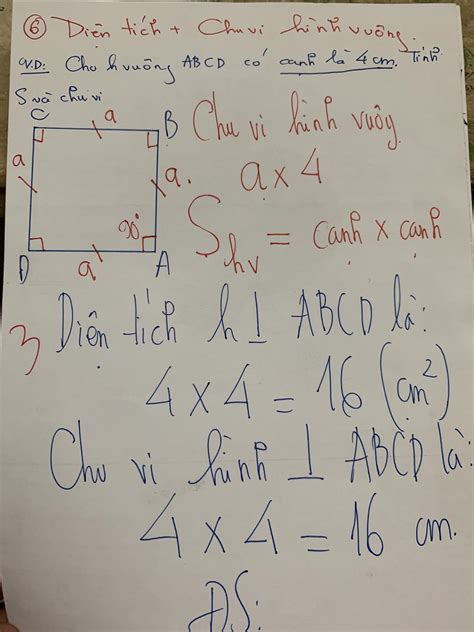 ⑥ Diện tích + Chu vi hình vuông.
V.D: Cho hvuông ABCD có cạnh là 4 cm. Tính
S và chu vi
C a B Chu vi hình vuông
a a. a x 4
90° S hv = cạnh x cạnh
D a A
3 Diện tích h⊥ ABCD là:
4 x 4 = 16 (cm²)
Chu vi hình ⊥ ABCD là:
4 x 4 = 16 cm.
Đ.S: